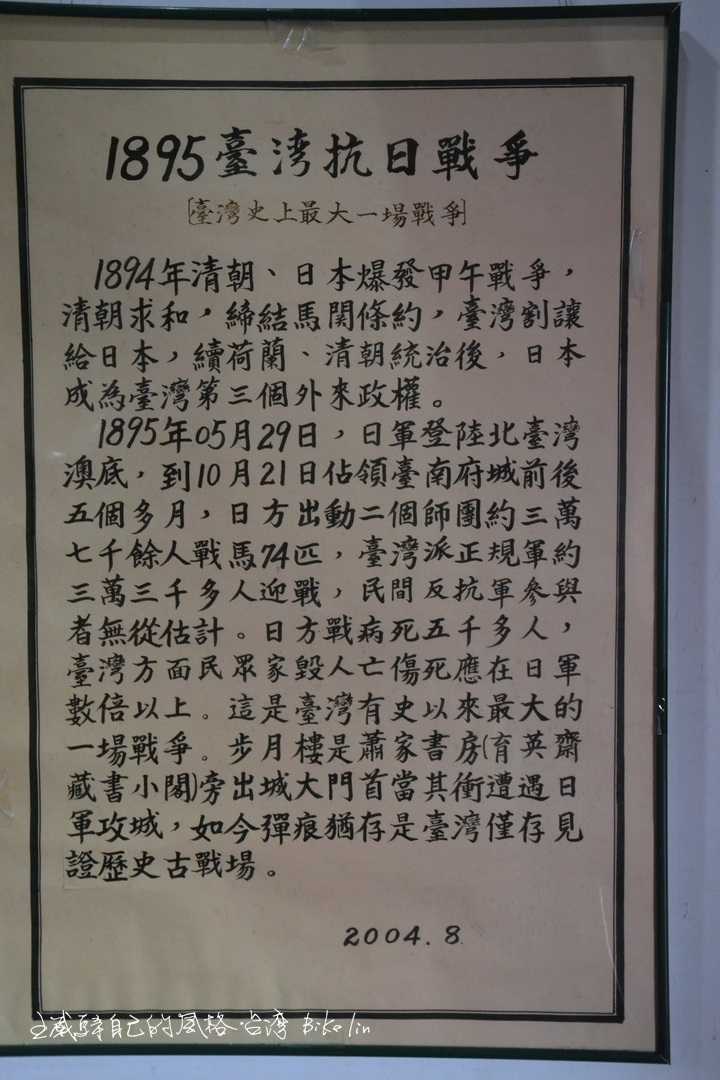 1895臺湾抗日戰爭
[臺灣史上最大一場戰爭]
1894年清朝、日本爆發甲午戰爭，
清朝求和，締結馬関條約，臺灣割讓
給日本，續荷蘭、清朝統治後，日本
成為臺灣第三個外來政權。
1895年05月29日，日軍登陸北臺灣
澳底，到10月21日佔領臺南府城前後
五個多月，日方出動二個師團約三萬
七千餘人戰馬74匹，臺灣派正規軍約
三萬三千多人迎戰，民間反抗軍參與
者無從估計。日方戰病死五千多人，
臺灣方面民眾家毀人亡傷死應在日軍
數倍以上。這是臺灣有史以來最大的
一場戰爭。步月樓是蕭家書房(育英齋
藏書小閣)旁出城大門首當其衝遭遇日
軍攻城，如今彈痕猶存是臺灣僅存見
證歷史古戰場。
2004.8
自己的風格·台湾 Bike lin